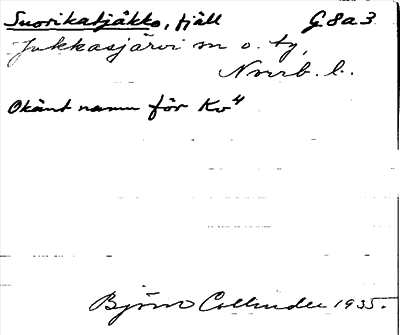 Suorikatjåkko, fjäll G8a3
Jukkasjärvi sn o. tg,
Norrb. l.
Okänt namn för Kv⁴
Björn Collinder 1935.